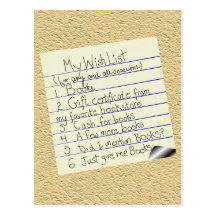 My Wish List
(for any and all seasons)
1. Books
2. Gift certificate from
my favorite bookstore
3. Cash for books
4. A few more books
5. Did I mention Books?
6. Just give me Books